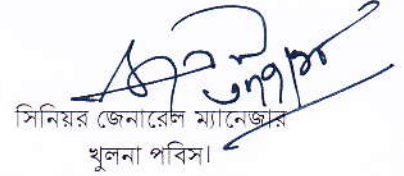 সিনিয়র জেনারেল ম্যানেজার
খুলনা পবিস।